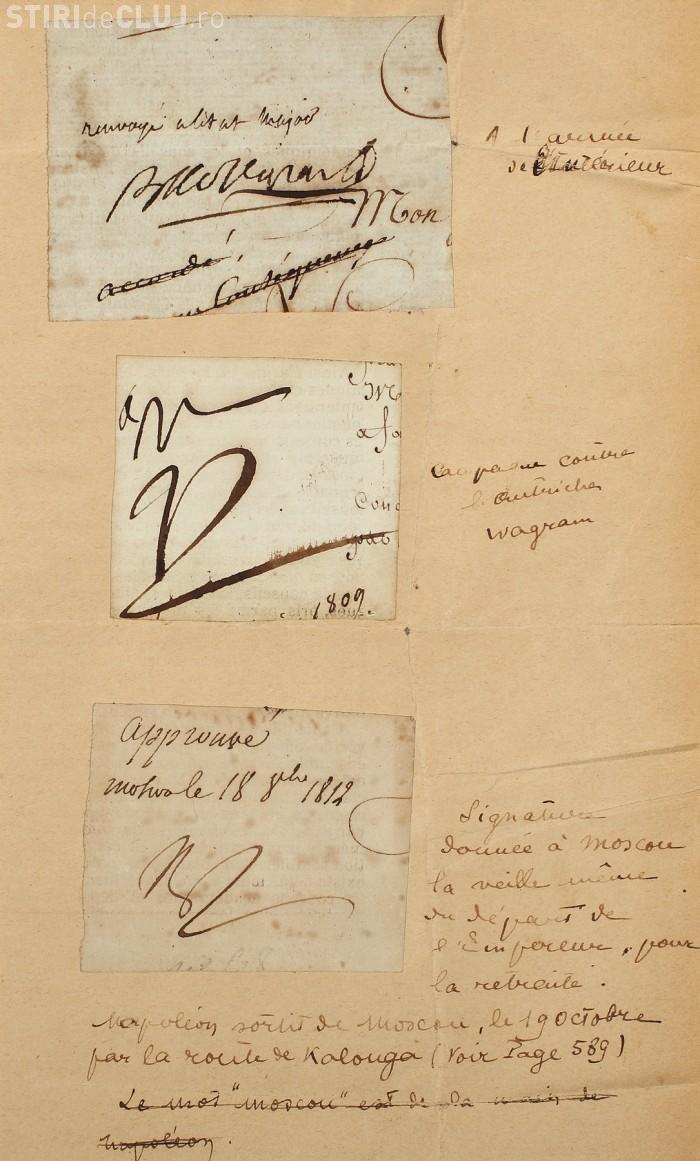 STIRIdeCLUJ.ro
renvoyé a l'etat major
Mon
accordé,
en Conséquence
A l'armée
de l'Intérieur
afa
Conc
1809
Campagne contre
l'Autriche
Wagram
approuvé
moscou le 18 8bre 1812
Signature
donnée à Moscou
la veille même
du départ de
l'Empereur, pour
la retraite.
Napoléon sortit de Moscou, le 19 Octobre
par la route de Kalouga (Voir Page 589)
Le mot "moscou" est de la main de
napoléon.